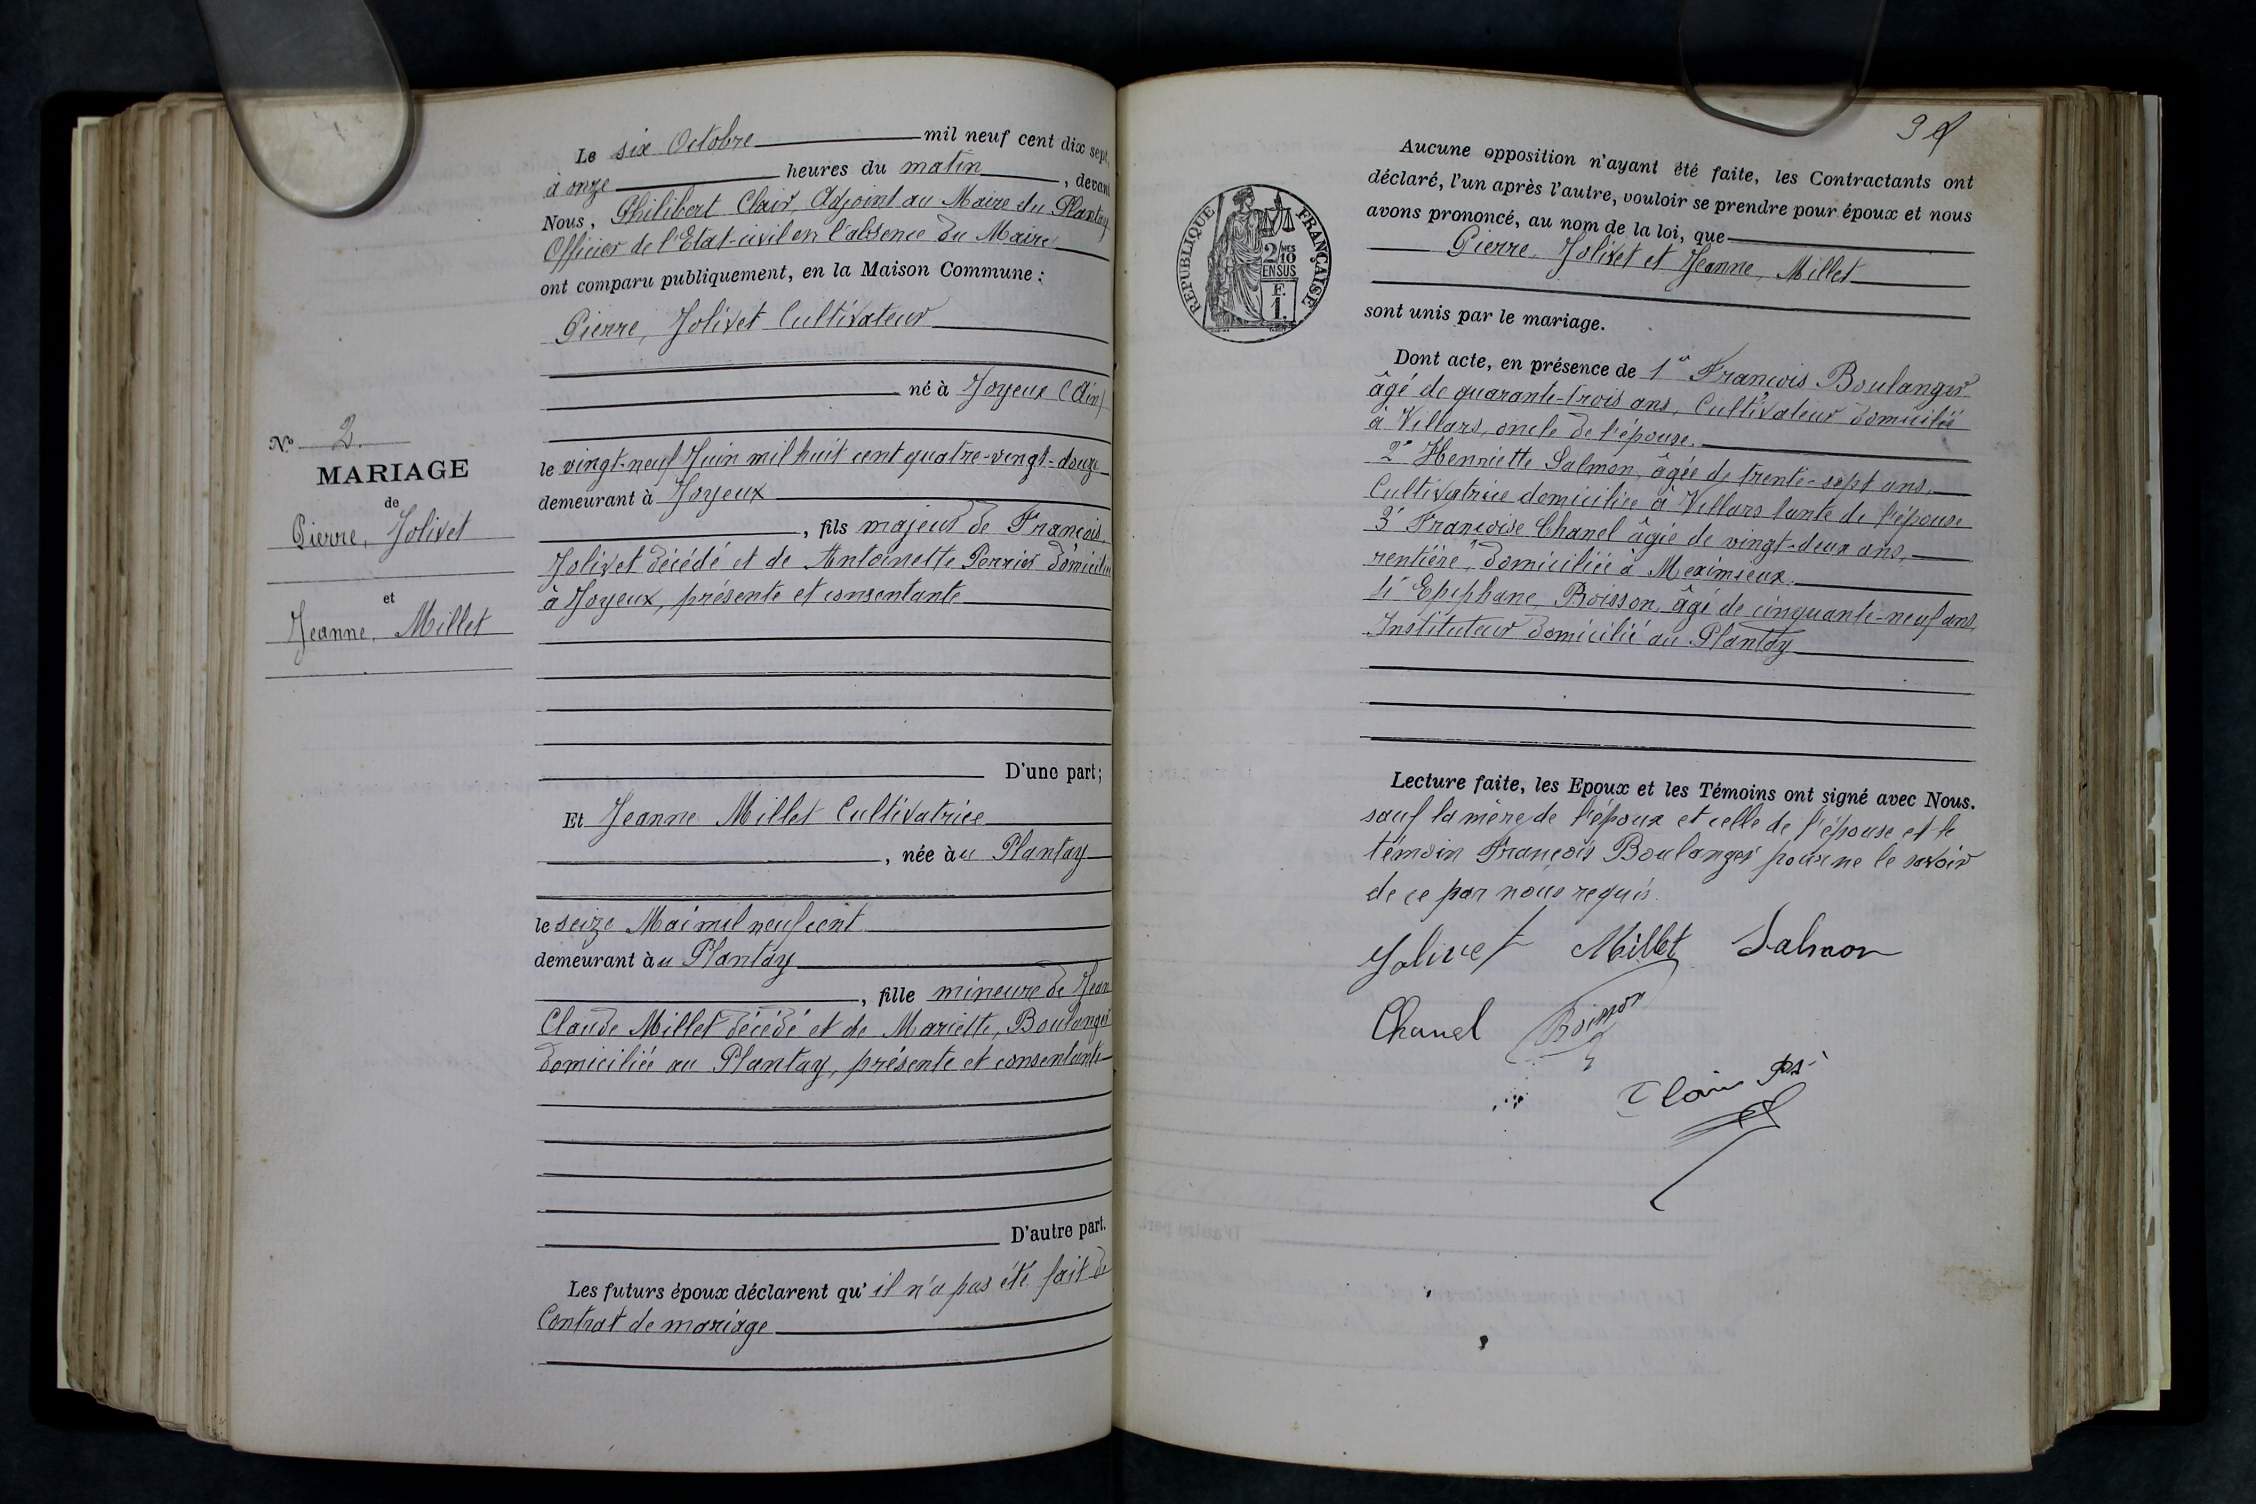 Le six Octobre mil neuf cent dix sept,
à onze heures du matin, devant
Nous, Philibert Clair, Adjoint au Maire du Plantay
Officier de l'Etat-civil en l'absence du Maire
ont comparu publiquement, en la Maison Commune :
Pierre, Jolivet Cultivateur
né à Joyeux (Ain)
le vingt-neuf Juin mil huit cent quatre-vingt-douze
demeurant à Joyeux
, fils majeur de François
Jolivet décédé et de Antoinette Perrier domiciliée
à Joyeux, présente et consentante
D'une part ;
Et Jeanne Millet Cultivatrice
, née au Plantay
le seize Mai mil neuf cent
demeurant au Plantay
, fille mineure de Jean
Claude Millet décédé et de Mariette, Boulanger
domiciliée au Plantay, présente et consentante
D'autre part.
Les futurs époux déclarent qu' il n'a pas été fait de
Contrat de mariage
N° 2.
MARIAGE
de
Pierre, Jolivet
et
Jeanne, Millet
9
RÉPUBLIQUE FRANÇAISE
2/10 MES
EN SUS
F.
1.
Aucune opposition n'ayant été faite, les Contractants ont
déclaré, l'un après l'autre, vouloir se prendre pour époux et nous
avons prononcé, au nom de la loi, que
Pierre, Jolivet et Jeanne, Millet
sont unis par le mariage.
Dont acte, en présence de 1° François Boulanger
âgé de quarante-trois ans, Cultivateur domicilié
à Villars, oncle de l'épouse.
2° Henriette Salmon, âgée de trente-sept ans,
Cultivatrice domiciliée à Villars tante de l'épouse
3° Françoise Chanel âgée de vingt-deux ans,
rentière, domiciliée à Meximieux.
4° Epiphane, Boisson, âgé de cinquante-neuf ans,
Instituteur domicilié au Plantay
Lecture faite, les Epoux et les Témoins ont signé avec Nous.
sauf la mère de l'époux et celle de l'épouse et le
témoin François Boulanger pour ne le savoir
de ce par nous requis.
Jolivet Millet Salmon
Chanel Boisson
Clair